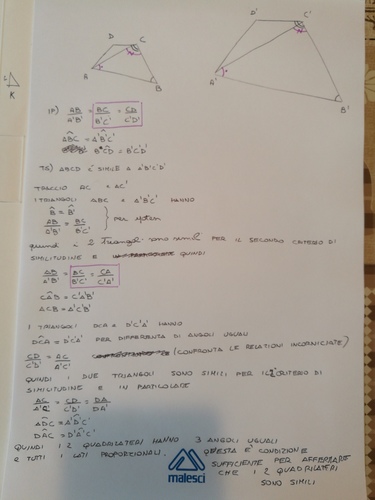 D C
A B
D' C'
A' B'
K
IP) AB/A'B' = BC/B'C' = CD/C'D'
ABC = A'B'C'
BCD = B'C'D'
TS) ABCD È SIMILE A A'B'C'D'
TRACCIO AC E A'C'
I TRIANGOLI ABC E A'B'C' HANNO
B = B'
AB/A'B' = BC/B'C' } PER IPOTESI
QUINDI I 2 TRIANGOLI SONO SIMILI PER IL SECONDO CRITERIO DI
SIMILITUDINE E QUINDI
AB/A'B' = BC/B'C' = CA/C'A'
CAB = C'A'B'
ACB = A'C'B'
I TRIANGOLI DCA E D'C'A' HANNO
DCA = D'C'A' PER DIFFERENZA DI ANGOLI UGUALI
CD/C'D' = AC/A'C' (CONFRONTA LE RELAZIONI INCORNICIATE)
QUINDI I DUE TRIANGOLI SONO SIMILI PER IL 2° CRITERIO DI
SIMILITUDINE E IN PARTICOLARE
AC/A'C' = CD/C'D' = DA/DA'
ADC = A'D'C'
DAC = D'A'C'
QUINDI I 2 QUADRILATERI HANNO 3 ANGOLI UGUALI
E TUTTI I LATI PROPORZIONALI. QUESTA È CONDIZIONE
SUFFICIENTE PER AFFERMARE
CHE I 2 QUADRILATERI
SONO SIMILI
malesci